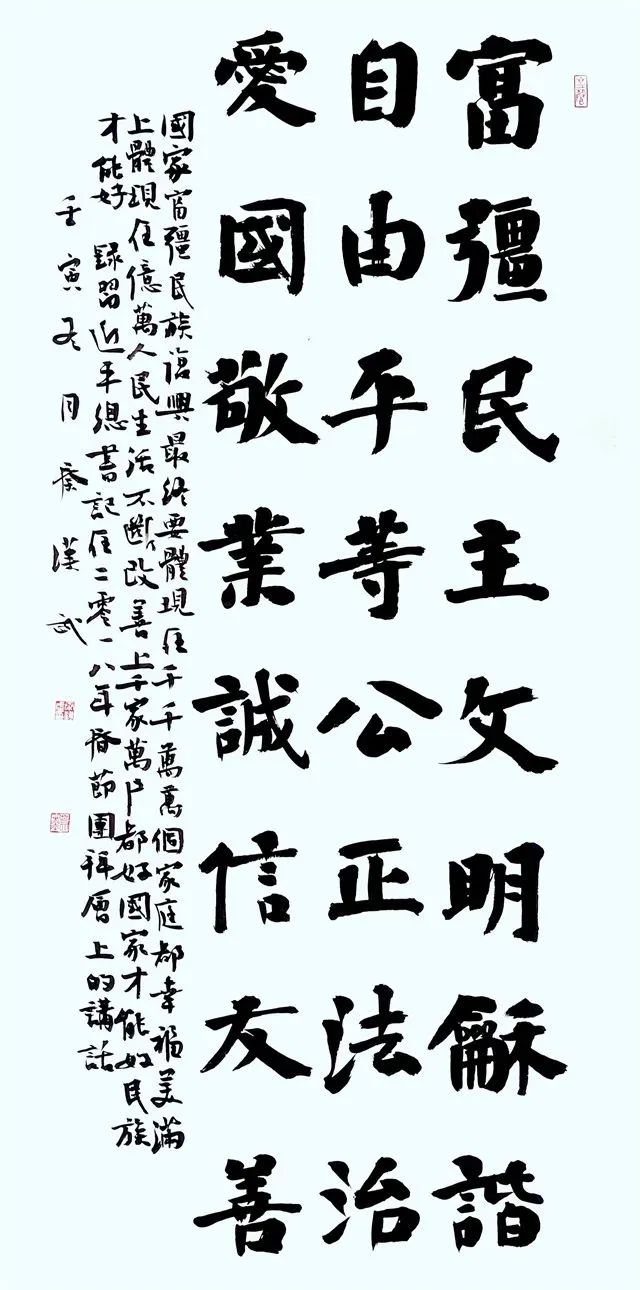 富彊民主文明龢諧
自由平等公正法治
愛國敬業誠信友善
國家富彊民族復興最終要體現在千千萬萬個家庭都幸福美滿
上體現在億萬人民生活不斷改善上千家萬户都好國家才能好民族
才能好 錄習近平總書記在二零一八年春節團拜會上的講話
壬寅冬月 漢武